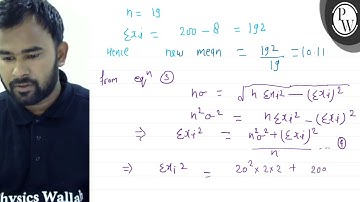 n = 19
Σxi = 200 - 8 = 192
Hence new mean = 192/19 = 10.11
from eqⁿ ③
nσ = √(n Σxi² - (Σxi)²)
n²σ² = n Σxi² - (Σxi)²
⇒ Σxi² = (n²σ² + (Σxi)²)/n ... ④
⇒ Σxi² = 20² × 2 × 2 + 200
PW
hysics Wallah